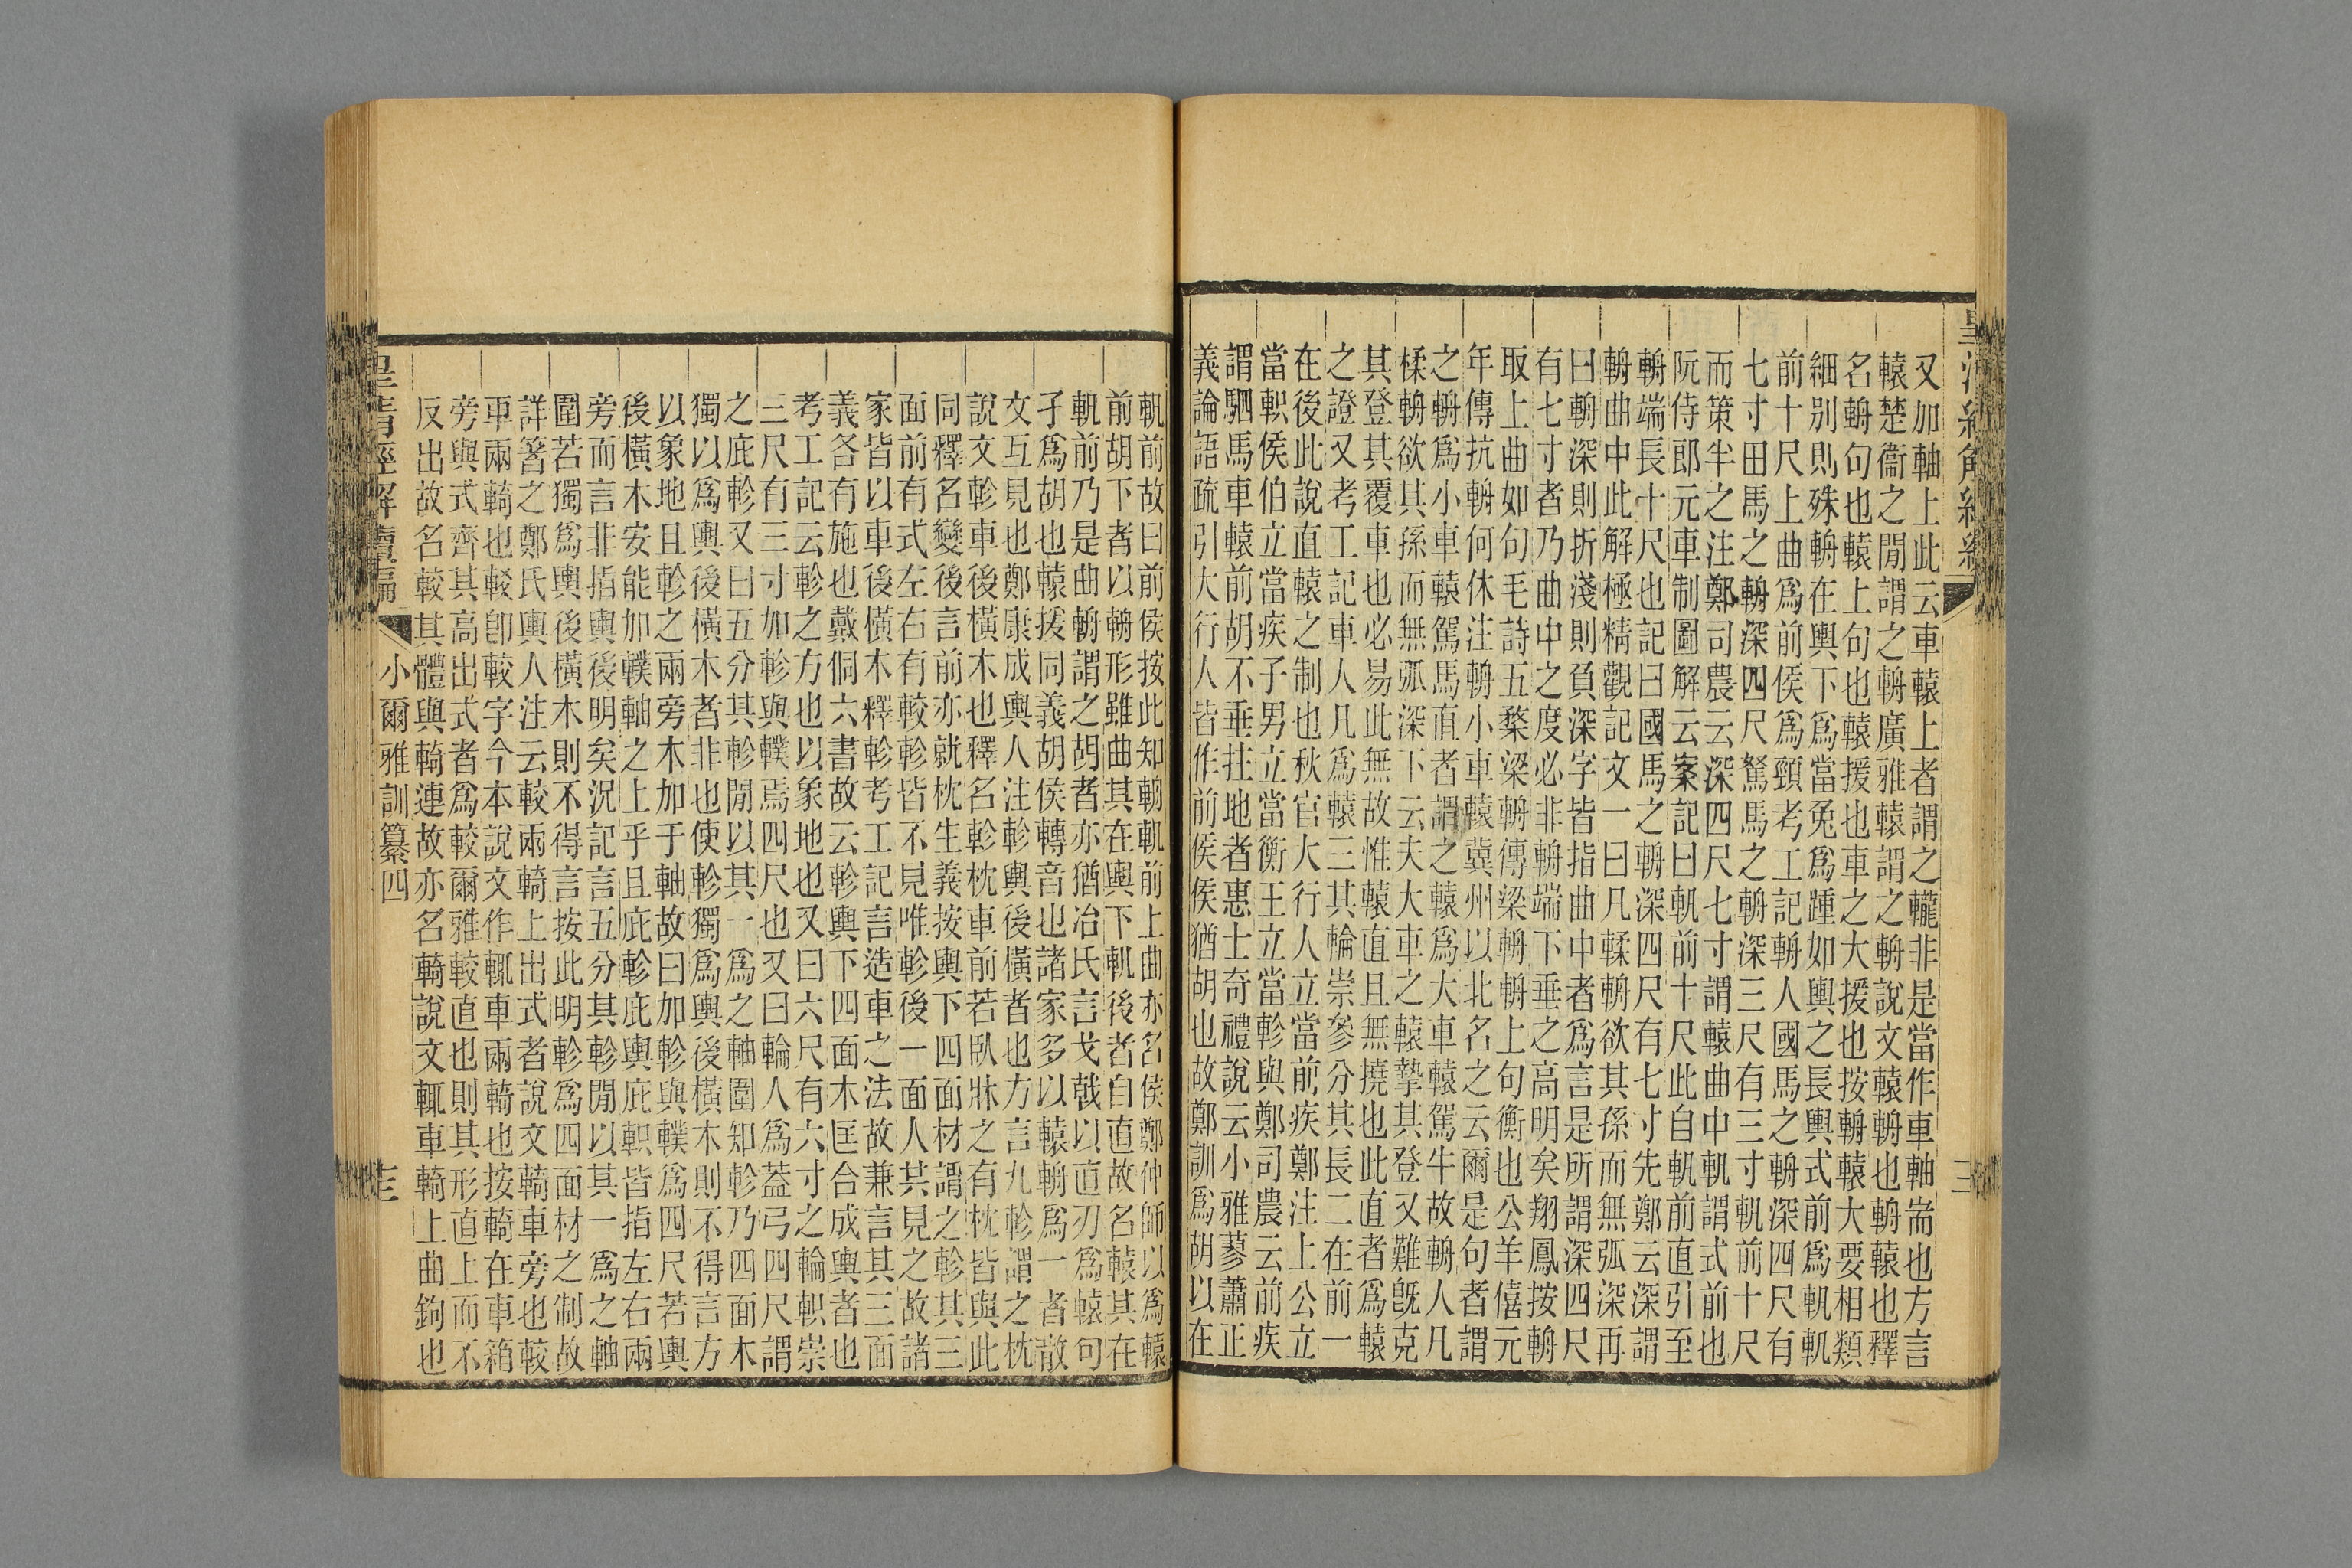 皇清經解續編
又加軸上此云車轅上者謂之轆非是當作車軸耑也方言
轅楚衞之閒謂之輈廣雅轅謂之輈說文轅輈也輈轅也釋
名輈句也轅上句也轅援也車之大援也按輈轅大要相類
細別則殊輈在輿下爲當兔爲踵如輿之長輿式前爲軓軓
前十尺上曲爲前侯爲頸考工記輈人國馬之輈深四尺有
七寸田馬之輈深四尺駑馬之輈深三尺有三寸軓前十尺
而策半之注鄭司農云深四尺七寸謂轅曲中軓謂式前也
阮侍郎元車制圖解云案記曰軓前十尺此自軓前直引至
輈端長十尺也記曰國馬之輈深四尺有七寸先鄭云深謂
輈曲中此解極精觀記文一曰凡輮輈欲其孫而無弧深再
曰輈深則折淺則負深字皆指曲中者爲言是所謂深四尺
有七寸者乃曲中之度必非輈端下垂之高明矣翔鳳按輈
取上曲如句毛詩五楘梁輈傳梁輈輈上句衡也公羊僖元
年傳抗輈何休注輈小車轅冀州以北名之云爾是句者謂
之輈爲小車轅駕馬直者謂之轅爲大車轅駕牛故輈人凡
楺輈欲其孫而無弧深下云夫大車之轅摯其登又難旣克
其登其覆車也必易此無故惟轅直且無撓也此直者爲轅
之證又考工記車人凡爲轅三其輪崇參分其長二在前一
在後此說直轅之制也秋官大行人立當前疾鄭注上公立
當軹侯伯立當疾子男立當衡王立當軫與鄭司農云前疾
謂駟馬車轅前胡不垂拄地者惠士奇禮說云小雅蓼蕭正
義論語疏引大行人皆作前侯侯猶胡也故鄭訓爲胡以在
軓前故曰前侯按此知輈軓前上曲亦名侯鄭仲師以爲轅
前胡下者以輈形雖曲其在輿下軓後者自直故名轅其在
軓前乃是曲輈謂之胡者亦猶冶氏言戈戟以直刃爲轅句
孑爲胡也轅援同義胡侯轉音也諸家多以轅輈爲一者散
文互見也鄭康成輿人注軫輿後橫者也方言九軫謂之枕
說文軫車後橫木也釋名軫枕車前若臥牀之有枕皆與此
同釋名變後言前亦就枕生義按輿下四面材謂之軫其三
面前有式左右有較軫皆不見唯軫後一面人共見之故諸
家皆以車後橫木釋軫考工記言造車之法故兼言其三面
義各有施也戴侗六書故云軫輿下四面木匡合成輿者也
考工記云軫之方也以象地也又曰六尺有六寸之輪軹崇
三尺有三寸加軫與轐焉四尺也又曰輪人爲蓋弓四尺謂
之庇軫又曰五分其軫閒以其一爲之軸圍知軫乃四面木
獨以爲輿後橫木者非也使軫獨爲輿後橫木則不得言方
以象地且軫之兩旁木加于軸故曰加軫與轐爲四尺若輿
後橫木安能加轐軸之上乎且庇軫庇輿庇軹皆指左右兩
旁而言非指輿後明矣況記言五分其軫閒以其一爲之軸
圍若獨爲輿後橫木則不得言按此明軫爲四面材之制故
詳箸之鄭氏輿人注云較兩輢上出式者說文輢車旁也較
車兩輢也較卽較字今本說文作輒車兩輢也按輢在車箱
旁與式齊其高出式者爲較爾雅較直也則其形直上而不
反出故名較其體與輢連故亦名輢說文輒車輢上曲鉤也
皇清經解續編
小爾雅訓纂四